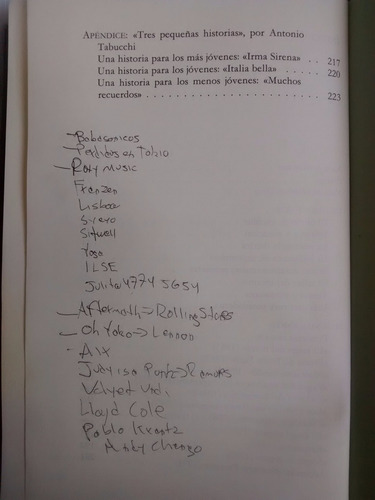 APÉNDICE: «Tres pequeñas historias», por Antonio
Tabucchi
Una historia para los más jóvenes: «Irma Sirena» . . 217
Una historia para los jóvenes: «Italia bella» . . . . . 220
Una historia para los menos jóvenes: «Muchos
recuerdos» . . . . . . . . . . . . . . . . . . . . . . 223
- Babasonicos
- Perdidos en Tokio
- Roxy Music
Franzen
Lisboa
Sitwell
Yoga
ILSE
Julita 4774 5654
- Aftermath → Rolling Stones
- Oh Yoko → Lennon
- Aix
Judy is a Punk → Ramones
Velvet Und.
Lloyd Cole
Pablo Krantz
Andy Chango